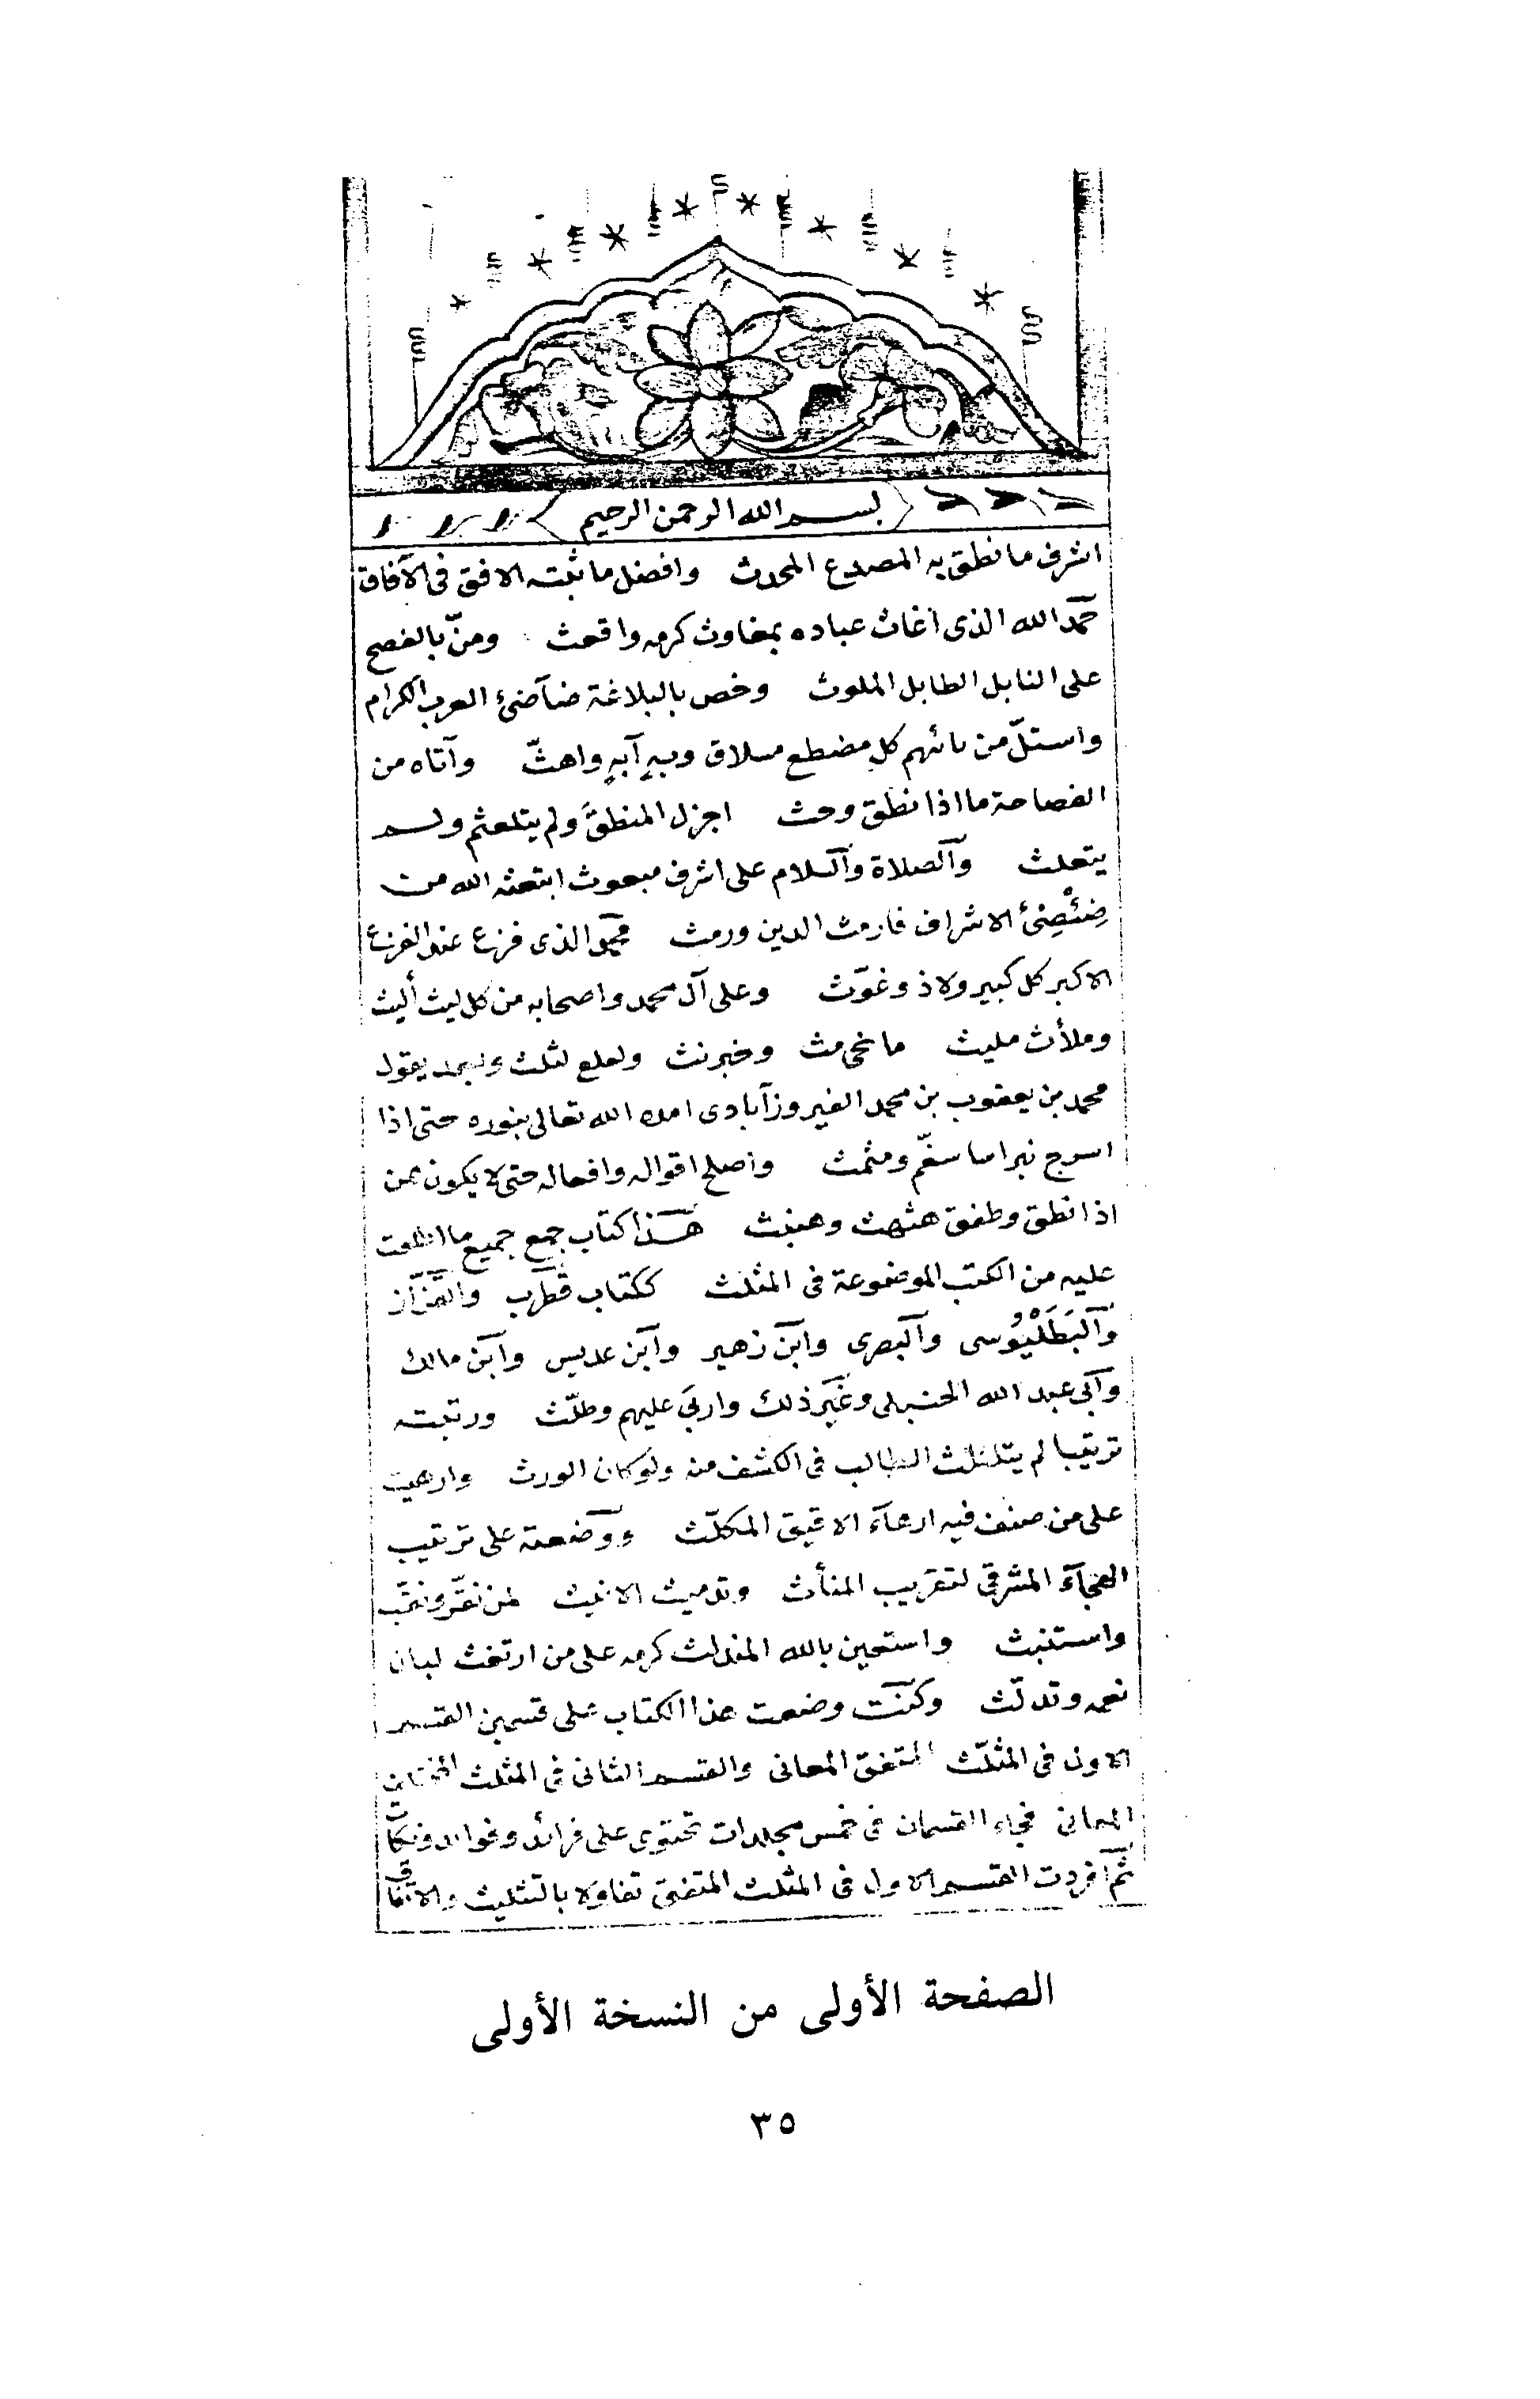 بسم الله الرحمن الرحيم
اشرف ما نطق به المصدع المحدث وافضل ما الافق فى الآفاق
حمد الله الذى اغاث عباده بمغاوث كرمه واقعث ومنّ بالفصح
على النابل الطابل الملوث وخص بالبلاغة ضآضئ العرب الكرام
واستلّ من كل مضطع مسلاق وبيرٍ آبهٍ واهثّ وآتاه من
الفصاحة ما اذا نطق وحث اجزل المنطق ولم يتلعثم ولم
يتعلث والصلاة والسلام على اشرف مبعوث ابتعثه الله من
ضئضئ الاشراف فارمث الدين ورمث محمد الذى فزع عند الفزع
الاكبر كل كبير ولاذ وغوّث وعلى آل محمد واصحابه من كل ليث أليث
وملأث مليث ما وخبرنث ولعلع لثلث وبعد يقول
محمد بن يعقوب بن محمد الفيروزآبادى امده الله تعالى بنوره حتى اذا
اسرج نبراسا سغّم ومثمث واصلح اقواله وافعاله حتى لا يكون ممن
اذا نطق وطفق هثهث وهنبث هذا كتاب جمع جميع ما اطلعت
عليه من الكتب الموضوعة فى المثلث ككتاب قطرب والقزّاز
والبَطَلْيُوسى والبصرى وابن زهير وابن عديس وابن مالك
وابى عبد الله الحنبلى وغير ذلك واربى عليهم وطلّث ورتبته
ترتيبا لم يتلثلث الطالب فى الكشف منه ولو كان الورث وارهيت
على من صنف فيه ارهآء الاقيق المكلّث ووضعته على ترتيب
الهجآء المشرقى لتقريب المنأث وتدميث الانيث لمن نقّر ونقّب
واستنبث واستعين بالله المغدلث كرمه على من ارتغث لبان
نعمه وتدلّث وكنت وضعت هذا الكتاب على قسمين القسم
الاول فى المثلّث المتفق المعانى والقسم الثانى فى المثلث المختلف
المعانى فجاء القسمان فى خمس مجلدات تحتوى على فرائد وفوائد ونكات
ثم افردت القسم الاول فى المثلث المتفق تفاؤلا بالتثليث والاتفاق
الصفحة الأولى من النسخة الأولى
٣٥